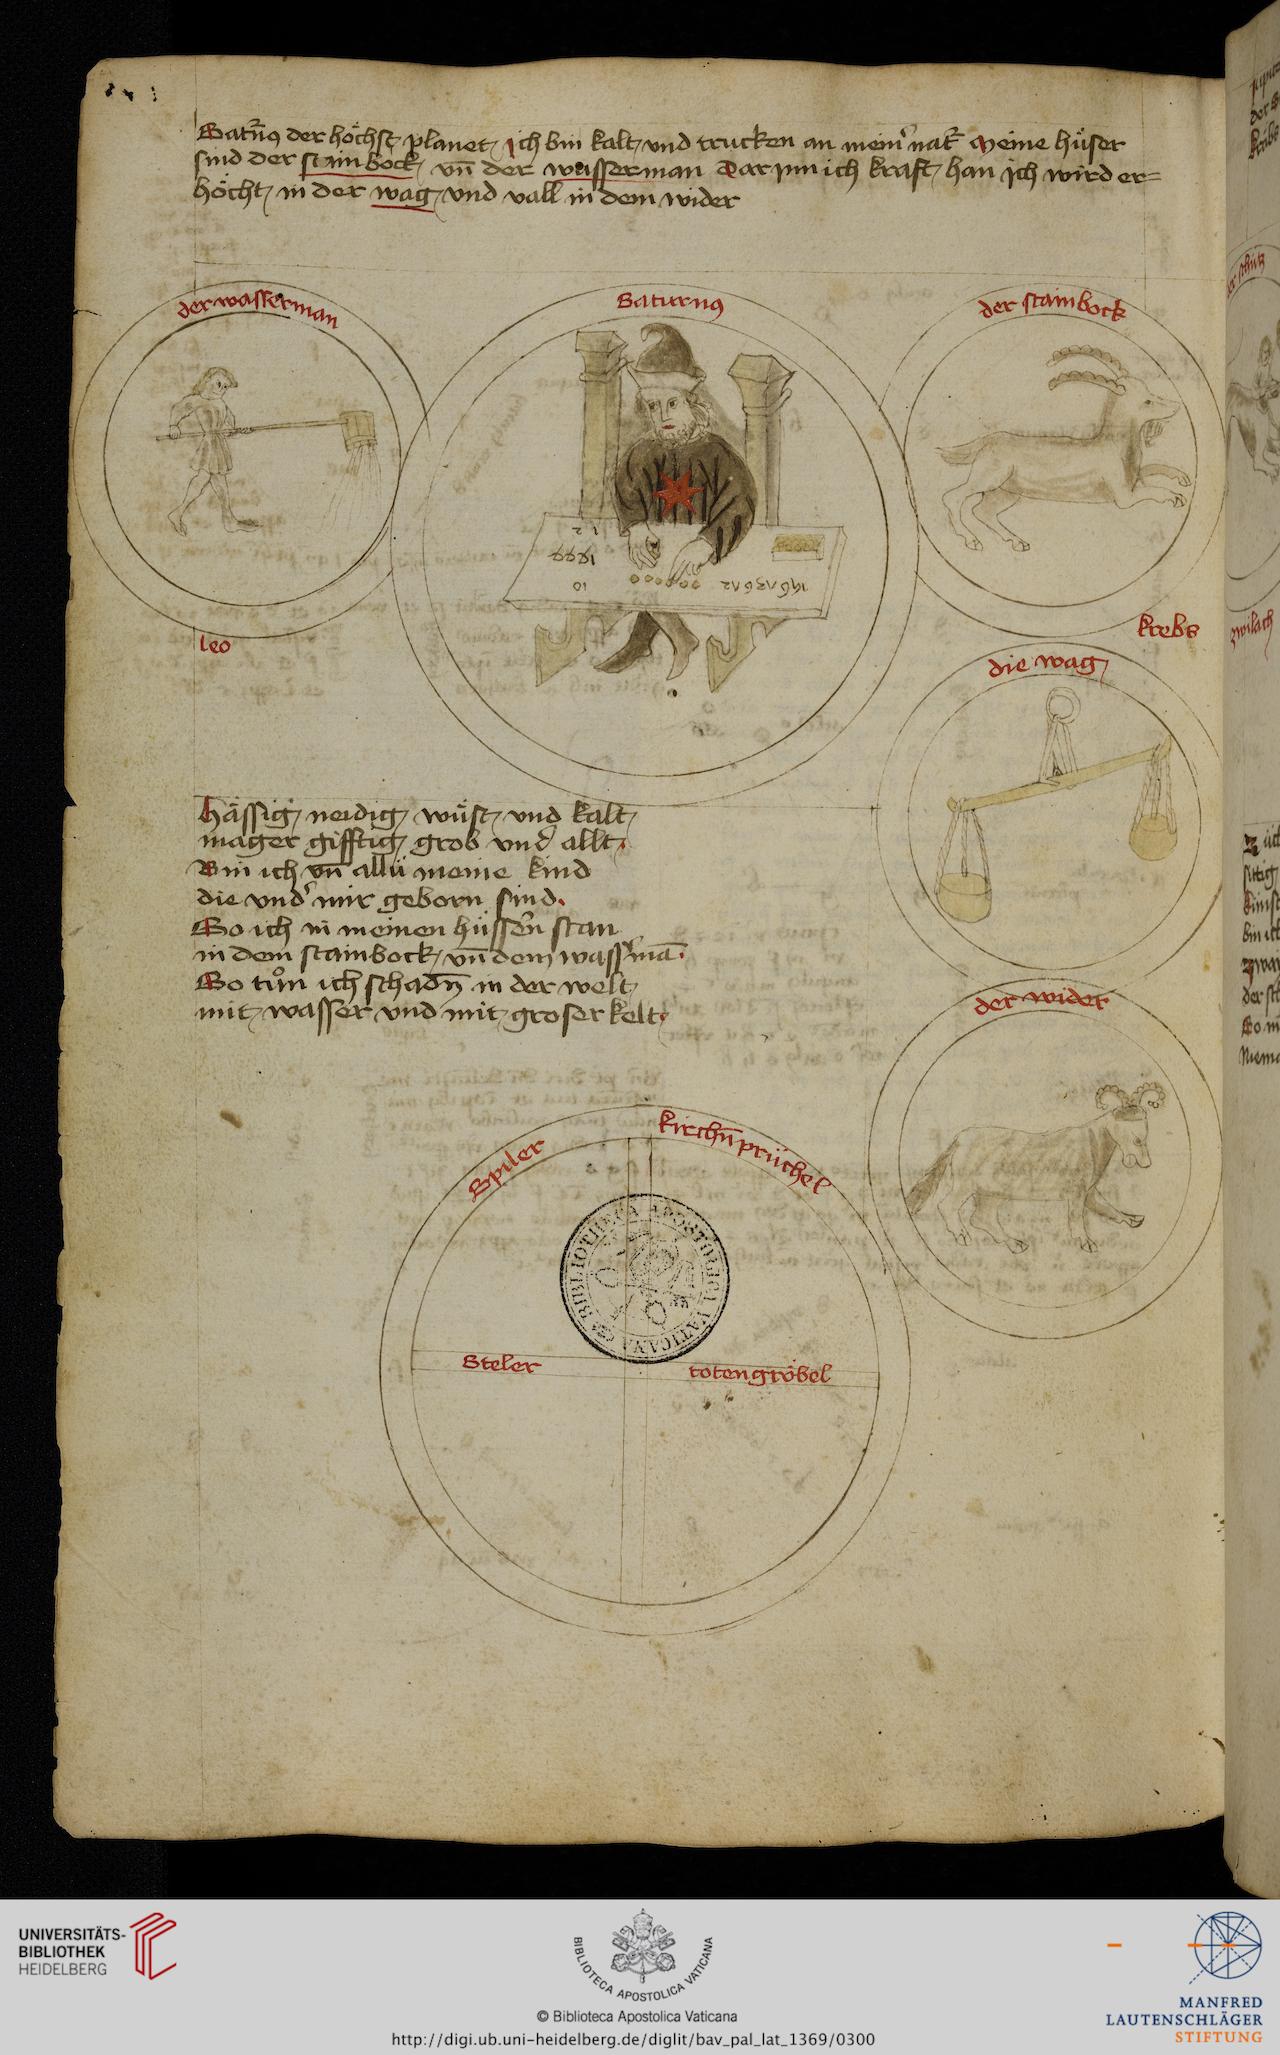 Satur̄nꝰ der höchst planet Ich bin kalt vnd trucken an mein̾ nat̾ Meine hüser
sind der stainbock vn̄ der wasserman Dar jnn ich kraft han Ich wird er=
höcht in der wag vnd vall in dem wider
der wasserman
Saturnꝰ
der stainbock
12
1477
10
leo
krebs
die wag
hässig neidig wüst vnd kalt
mager gifftig grob vnd allt.
Bin ich vn̄ allü meine kind
die vnd̾ mir geborn sind.
So ich in meinen hüssern stan
in dem stainbock vn̄ dem wass̾mā.
So tůn ich schadn̄ in der welt
mit wasser vnd mit groser kelt
der wider
Spiler
kirchn̄prüchel
BIBLIOTHECA APOSTOLICA VATICANA
Steler
totengröbel
der schütz
zwilach
UNIVERSITÄTS-
BIBLIOTHEK
HEIDELBERG
BIBLIOTECA APOSTOLICA VATICANA
© Biblioteca Apostolica Vaticana
http://digi.ub.uni-heidelberg.de/diglit/bav_pal_lat_1369/0300
MANFRED
LAUTENSCHLÄGER
STIFTUNG